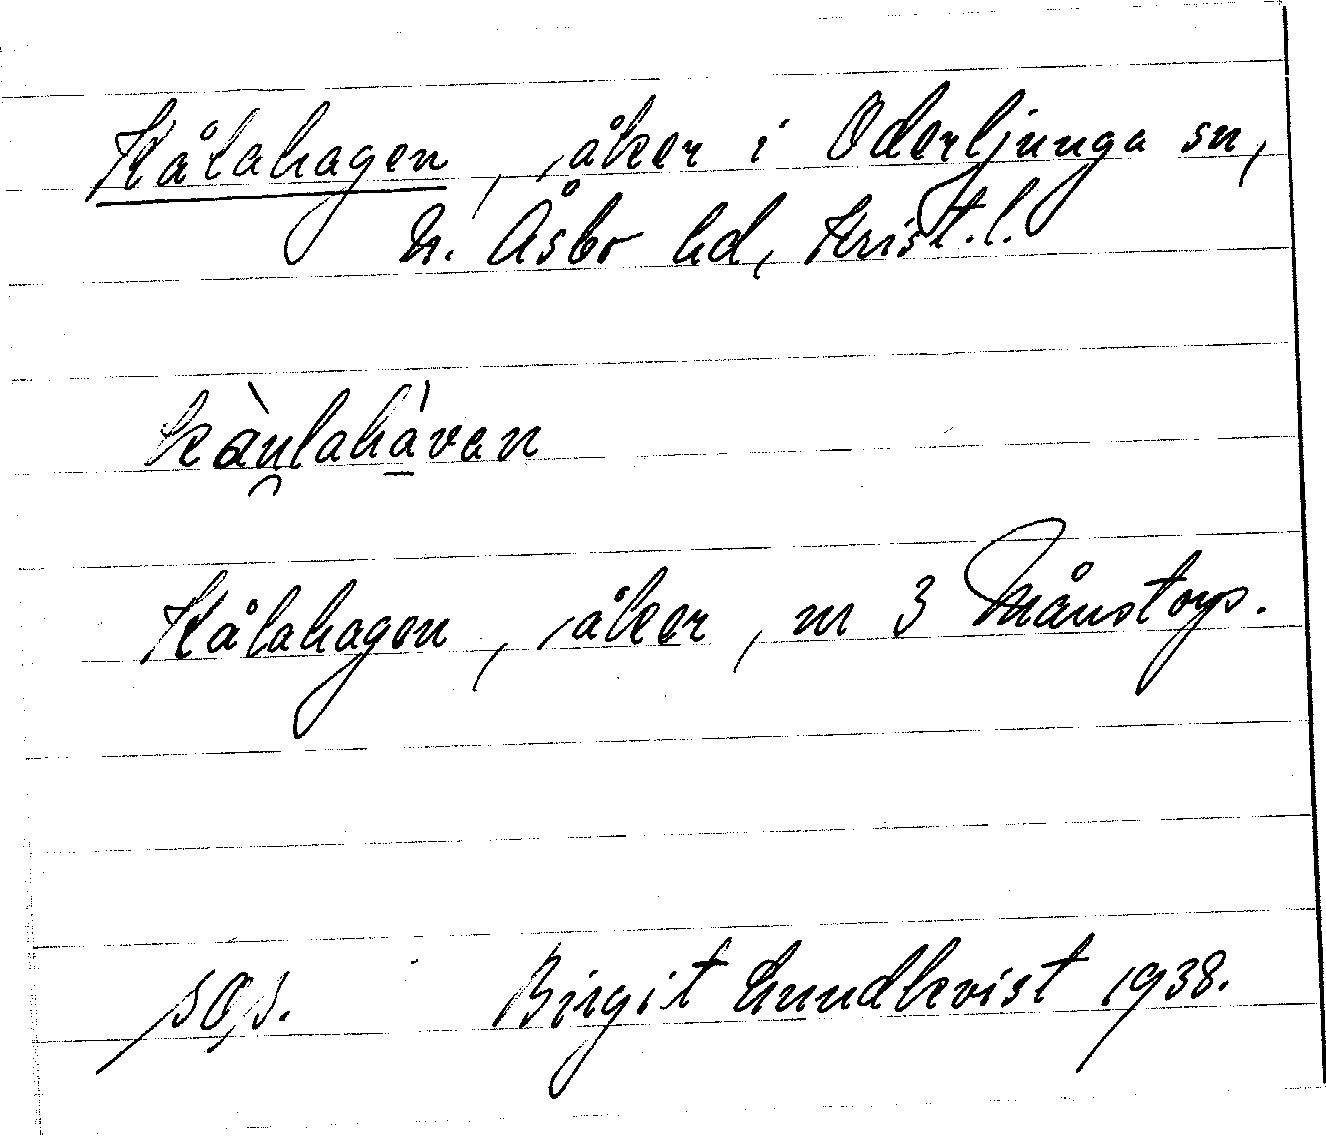 Kålahagen, åker i Oderljunga sn,
N. Åsbo hd, Krist. l.
kàu̯lahá̠van
Kålahagen, åker, nr 3 Månstorp.
Birgit Lundkvist 1938.